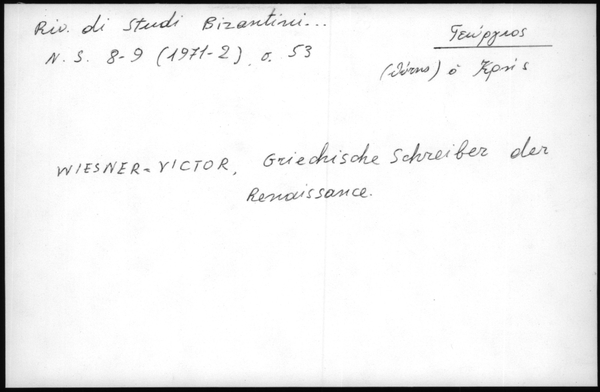 Riv. di Studi Bizantini...
N. S. 8-9 (1971-2), σ. 53
Γεώργιος
ὁ Κρής
WIESNER-VICTOR, Griechische Schreiber der
Renaissance.